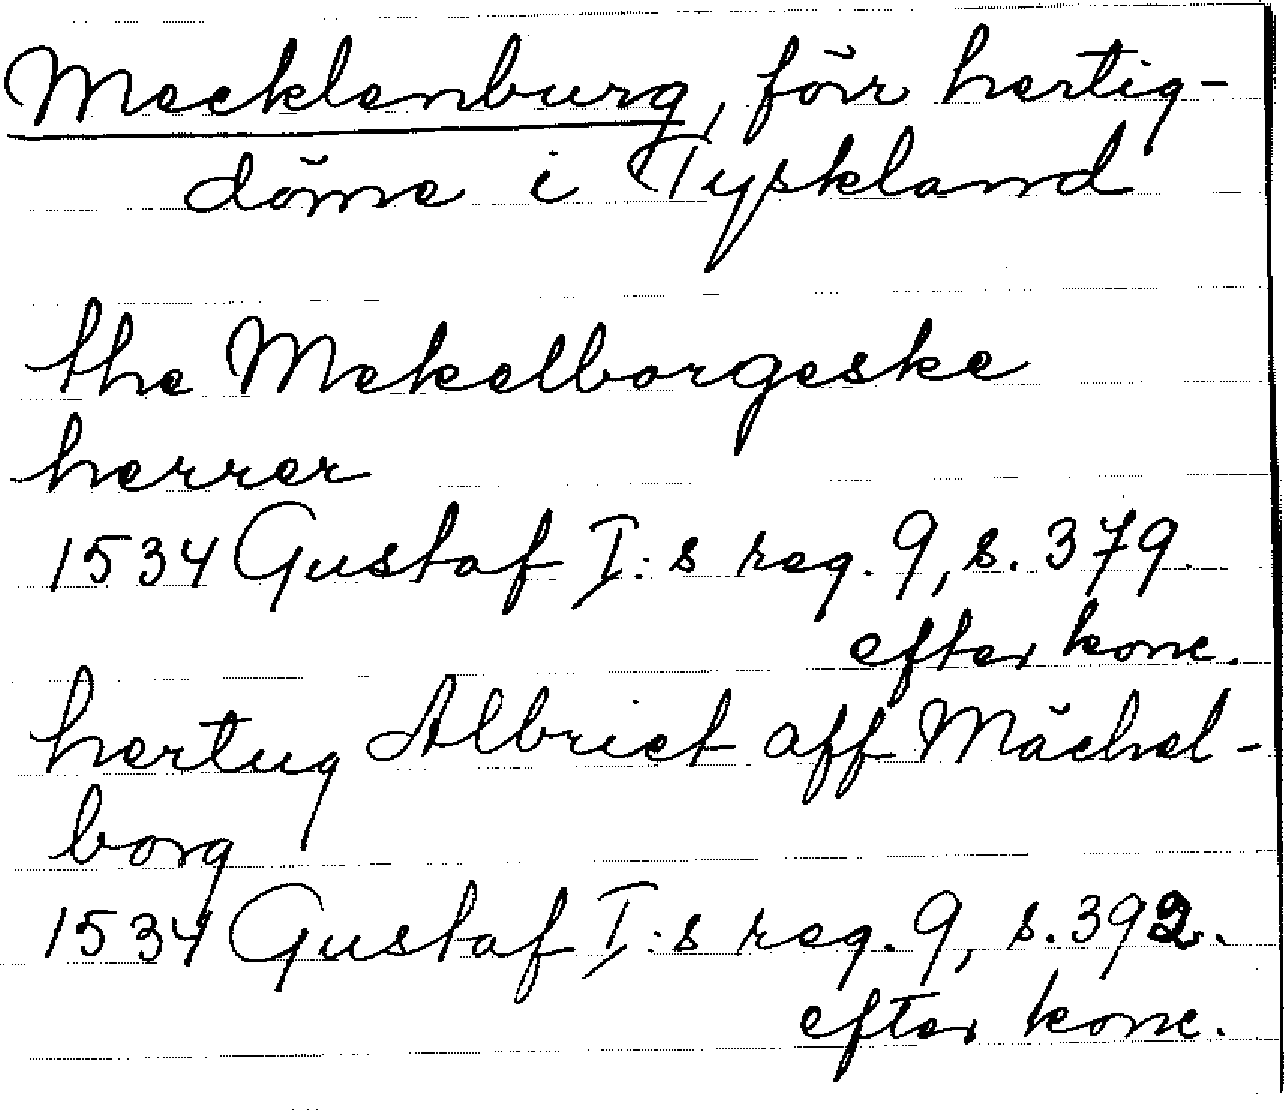 Mecklenburg, förr hertig-
döme i Tyskland
the Mekelborgeske
herrer
1534 Gustaf I:s reg. 9, s. 379
efter konc.
hertug Albrict aff Mächel-
borg
1534 Gustaf I:s reg. 9, s. 392.
efter konc.